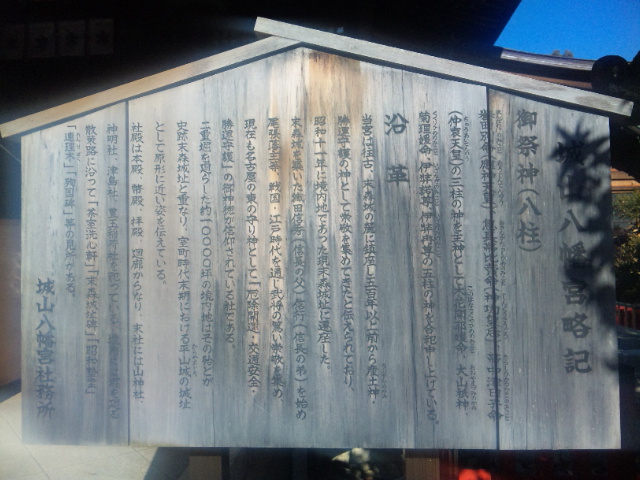 城山八幡宮略記
御祭神(八柱)
誉田別命(應神天皇)
(仲哀天皇)の三柱の神を主神として 大山祇神
菊理媛命、伊弉諾尊、伊弉冉尊の五柱の神を合祀申し上げている。
沿革
当宮は往古、末森城の麓に鎮座し五百年以上前から産土神・
勝運守護の神として崇敬を集めてきたと伝えられており、
昭和十一年に境内地であった現末森城址に遷座した。
末森城を築いた織田信秀(信長の父)、信行(信長の弟)を始め
尾張藩士等、戦国・江戸時代を通じ武将の篤い崇敬を集め、
現在も名古屋の東の守り神として「厄除開運・交通安全・
勝運守護」の御神徳が信仰されている社である。
二重堀を廻らした約一〇〇〇〇坪の境内地はそのほとんどが
史跡末森城址と重なり、室町時代末期における平山城の城址
として原形に近い姿を伝えている。
社殿は本殿、幣殿、拝殿、廻廊からなり、末社に山神社
神明社、津島社、豊玉稲荷社を祀っている。
散策路に沿って「茶室洗心軒」「末森城址碑」「昭和塾堂」
「連理木」等の見所がある。
城山八幡宮社務所